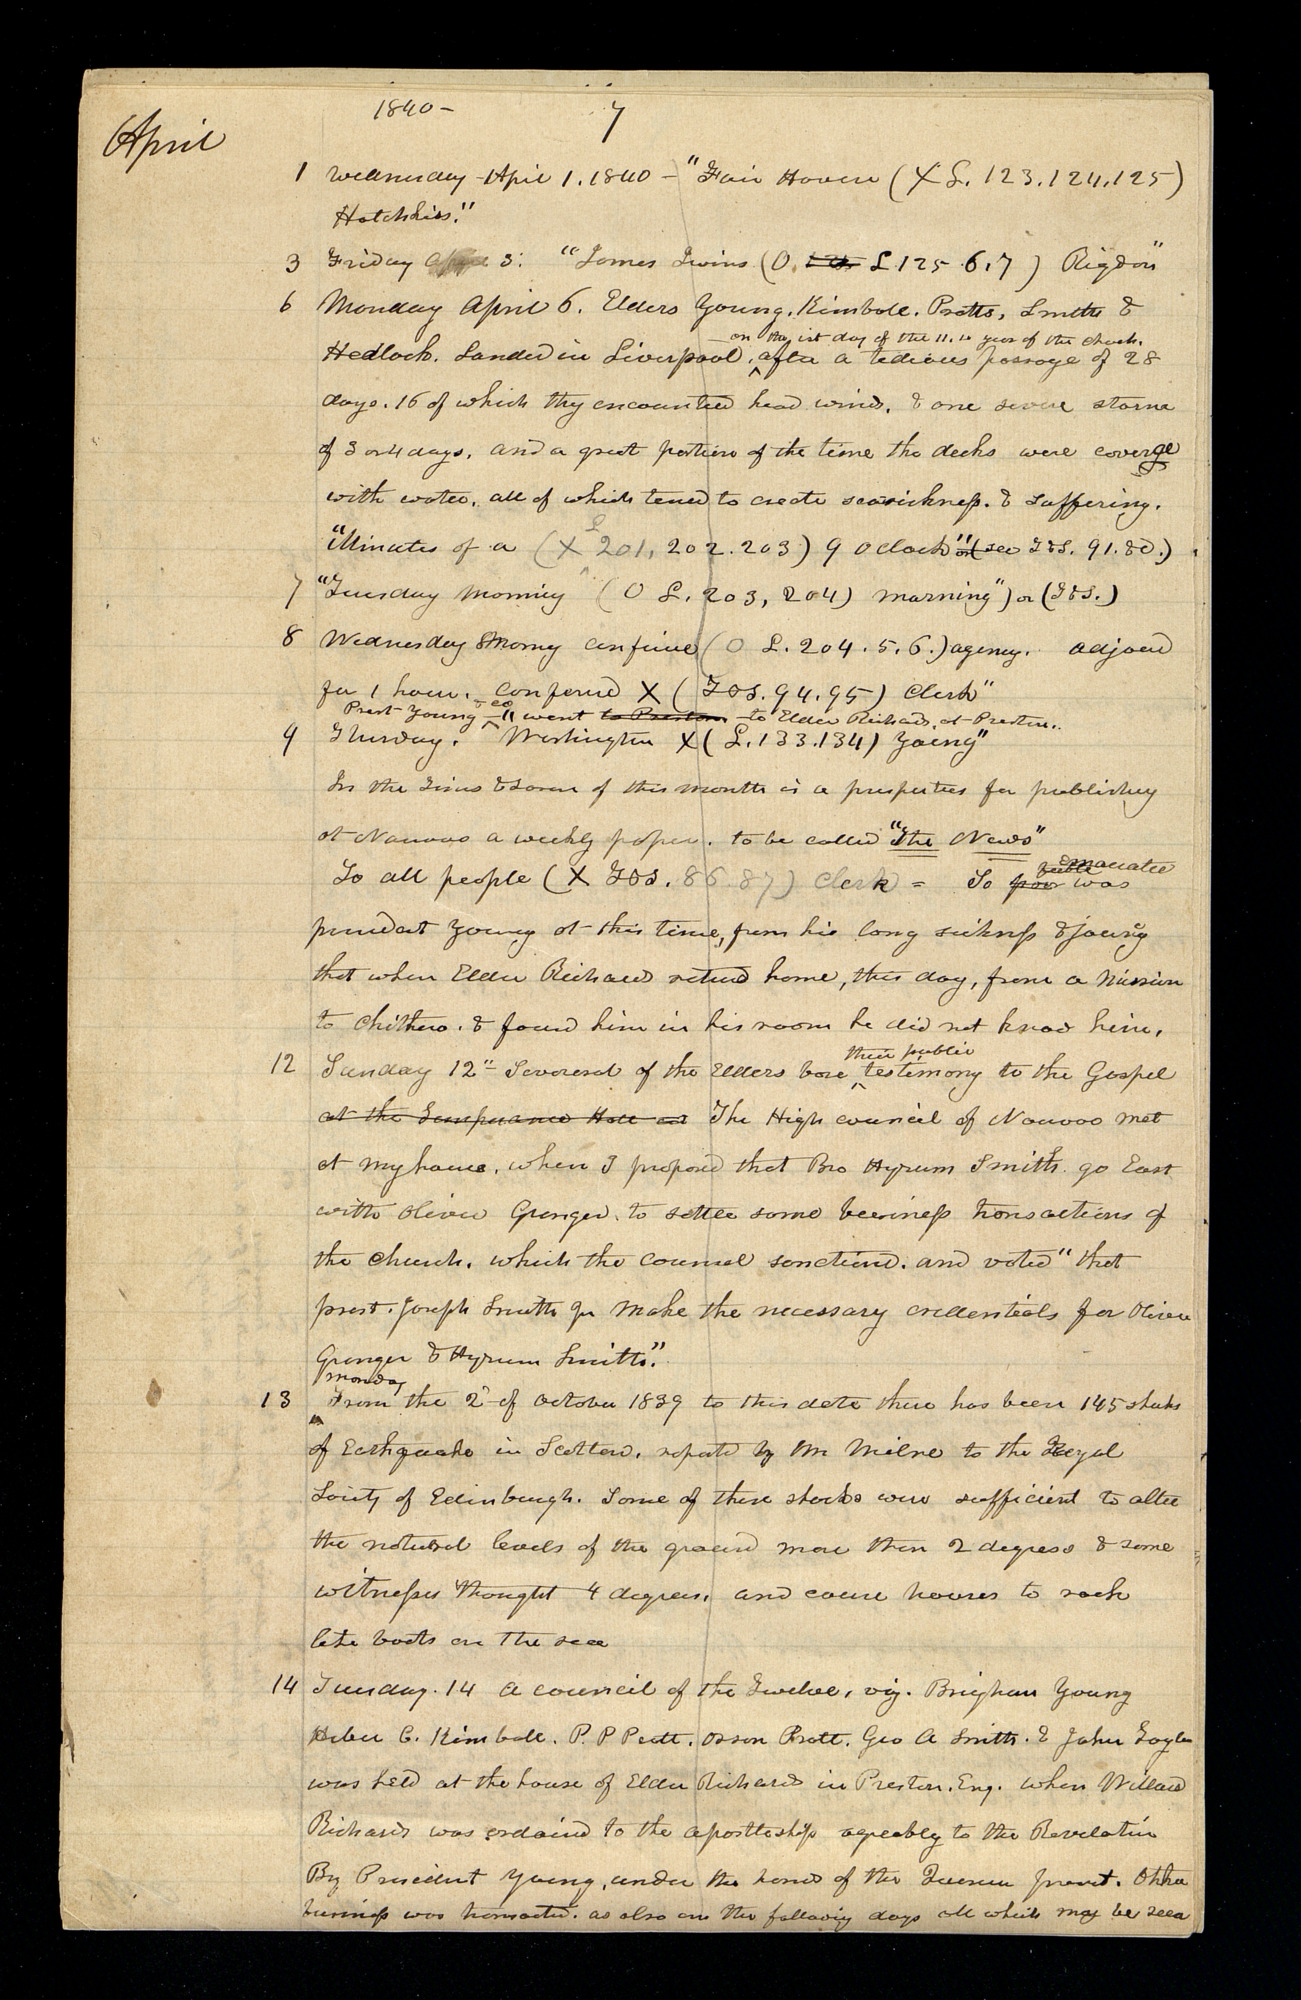 1840 – 7
April
1 Wednesday April 1. 1840 – "Fair Haven (X L. 123. 124. 125)
Hotchkiss."
3 Friday April 3: "James Ivins (O. L 125. 6. 7) Rigdon"
6 Monday April 6. Elders Young. Kimball. Pratts, Smith &
on the 1st day of the 11.th year of the church.
Hedlock. Landed in Liverpool, ^ after a tedious passage of 28
days. 16 of which they encountered head winds. & one severe storm
of 3 or 4 days. and a great portion of the time the decks were covered
with water, all of which tend to create seasickness. & suffering.
"Minutes of a (X L 201, 202. 203) 9 oclock" (see T&S. 91. &c.)
7 "Tuesday morning (O L. 203, 204) morning") or (T&S.)
8 Wednesday morng confined (O L. 204. 5. 6.) agency. adjourd
for 1 hour. Conferrd X (T&S. 94. 95) Clerk"
Prest Young & co went to Preston to Elder Richards, at Preston..
9 Thursday. ^ "Washington X (L. 133. 134) Young"
In the Times & Seasons of this month is a prospectus for publishing
at Nauvoo a weekly paper. to be called "The News"
To all people (X T&S. 86 87) Clerk = So poor was
feeble & emaciated
president Young at this time, from his long sickness & journey
that when Elder Richards returnd home, this day, from a mission
to Clithero. & found him in his room he did not know him,
12 Sunday 12" Several of the Elders bore ^ testimony to the Gospel
their public
at the Temperance Hall and The High council of Nauvoo met
at my house, when I proposed that Bro Hyrum Smith go East
with Oliver Granger, to settle some business transactions of
the church. which the counsel sanctiond. and voted "that
prest. Joseph Smith Jr make the necessary credentials for Oliver
Granger & Hyrum Smith".
Monday
13 ^ From the 2d of October 1839 to this date there has been 145 shocks
of Earthquake in Scotland, reported by Mr Milne to the Royal
Society of Edinburgh. Some of these shocks were sufficient to alter
the natural levels of the ground more than 2 degrees & some
witnesses thought 4 degrees, and cause houses to rock
like boats on the sea
14 Tuesday. 14 A council of the Twelve, viz. Brigham Young
Heber C. Kimball. P. P Pratt. Orson Pratt. Geo A Smith. & John Taylor
was held at the house of Elder Richards in Preston. Eng. when Willard
Richards was ordaind to the apostleship agreeably to the Revelation
By President Young, under the hands of the Quorum present. Other
business was transacted. as also on the following days all which may be seen